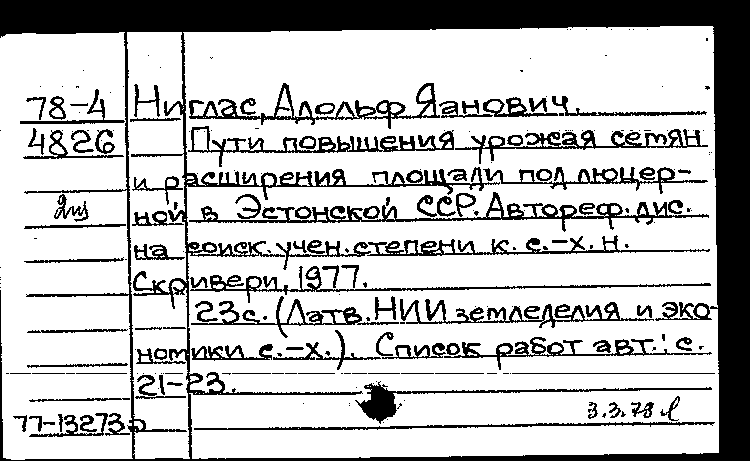 78-4 Ниглас, Адольф Яанович.
4826 Пути повышения урожая семян
и расширения площади под люцер-
ной в Эстонской ССР. Автореф. дис.
на соиск. учен. степени к. с.-х. н.
Скривери, 1977.
23с. (Латв. НИИ земледелия и эко-
номики с.-х.). Список работ авт.: с.
21-23.
77-13273
3.3.78